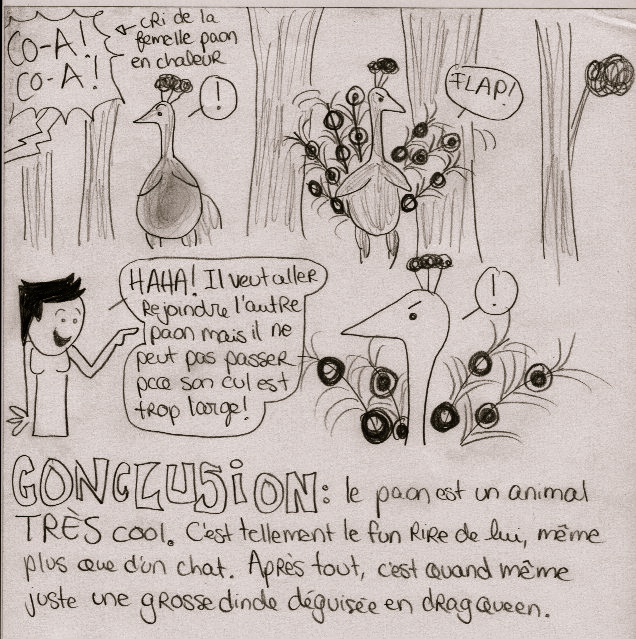 CO-A!
CO-A!
CRi de la
femelle paon
en chaleur
!
FLAP!
HAHA! Il veut aller
Rejoindre l'autre
paon mais il ne
peut pas passer
pcq son cul est
trop large!
!
CONCLUSiON: le paon est un animal
TRÈS cool. C'est tellement le fun RiRe de lui, même
plus que d'un chat. Après tout, c'est quand même
juste une grosse dinde déguisée en dragqueen.